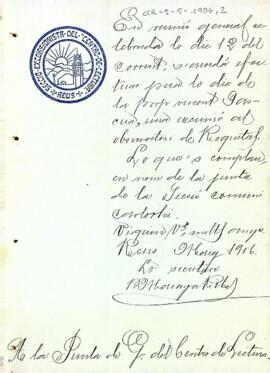 CR-5-5-1906,2
SECCIÓ EXCURSIONISTA DEL "CENTRO DE LECTURA"
REUS
En reunió general ce-
lebrada lo dia 12 del
corrent, s'acordá efec-
tuar para lo dia de
la próxima vinent Pas-
cua, una excursió al
observatori de Roquetas.
Lo que's complau
en nom de la junta
de la Secció comuni-
carlos
Visquin Vs. molts anys.
Reus Mars 1906.
Lo secretari
A la Junta de G. del Centro de Lectura.